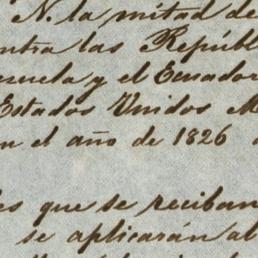 N. la mitad de
ntra las Repúbl
zuela y el Ecuador
Estados Unidos M
n el año de 1826
es que se reciban
se aplicarán al